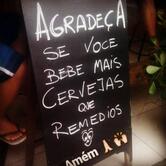 AGRADEÇA
SE VOCE
BEBE MAIS
CERVEJAS
QUE
REMEDIOS
Amém